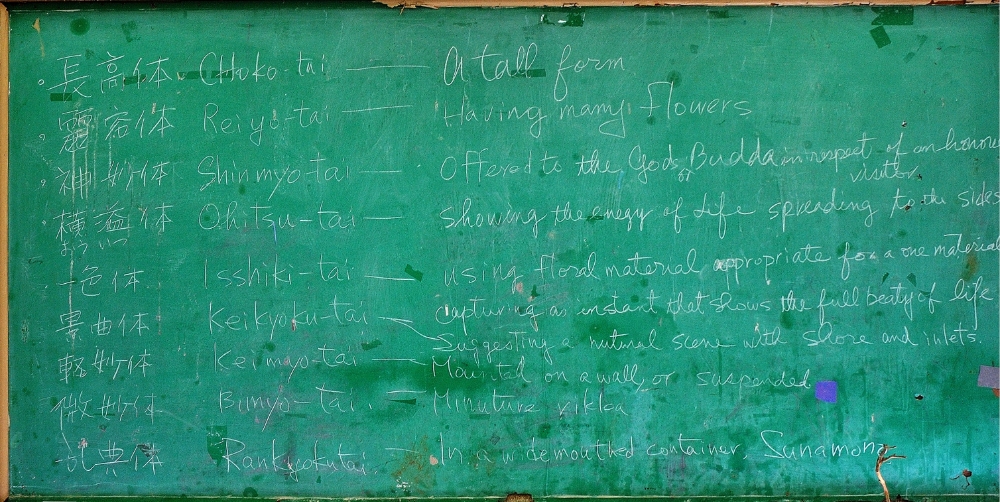 長高体 Choko-tai — A tall form
霊容体 Reiyo-tai — Having many flowers
神妙体 Shinmyo-tai — Offered to the Gods or Budda in respect of an honour visitor
横溢体 Ohitsu-tai — showing the enegy of Life spreading to the sides
おういつ
一色体 Isshiki-tai — using floral material appropriate for a one material
capturing an instant that shows the full beaty of life
景曲体 Keikyoku-tai — Suggesting a natural scene with shore and inlets.
軽妙体 Keimyo-tai — Mounted on a wall, or suspended
微妙体 Bimyo-tai. — Minuture rikka
乱曲体 Rankyokutai — In a widemouthed container, Sunamono